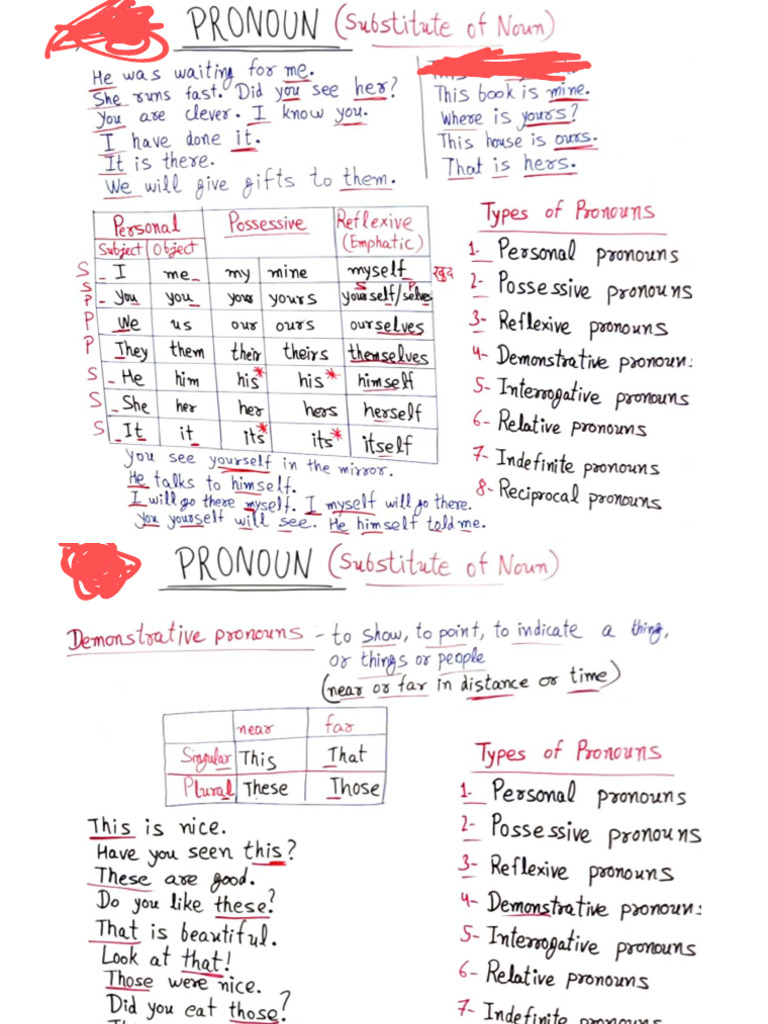 PRONOUN (Substitute of Noun)
He was waiting for me.
She runs fast. Did you see her?
You are clever. I know you.
I have done it.
It is there.
We will give gifts to them.
This book is mine.
Where is yours?
This house is ours.
That is hers.
Personal Possessive Reflexive
Subject Object (Emphatic)
S I me my mine myself खुद
S P You you your yours yourself/selves S P
P We us our ours ourselves
P They them their theirs themselves
S He him his* his* himself
S She her her hers herself
S It it its* its* itself
Types of Pronouns
1- Personal pronouns
2- Possessive pronouns
3- Reflexive pronouns
4- Demonstrative pronoun:
5- Interrogative pronouns
6- Relative pronouns
7- Indefinite pronouns
8- Reciprocal pronouns
You see yourself in the mirror.
He talks to himself.
I will go there myself. I myself will go there.
You yourself will see. He himself told me.
PRONOUN (Substitute of Noun)
Demonstrative pronouns - to show, to point, to indicate a thing,
or things or people
(near or far in distance or time)
near far
Singular This That
Plural These Those
This is nice.
Have you seen this?
These are good.
Do you like these?
That is beautiful.
Look at that!
Those were nice.
Did you eat those?
Types of Pronouns
1- Personal pronouns
2- Possessive pronouns
3- Reflexive pronouns
4- Demonstrative pronoun:
5- Interrogative pronouns
6- Relative pronouns
7- Indefinite pronouns